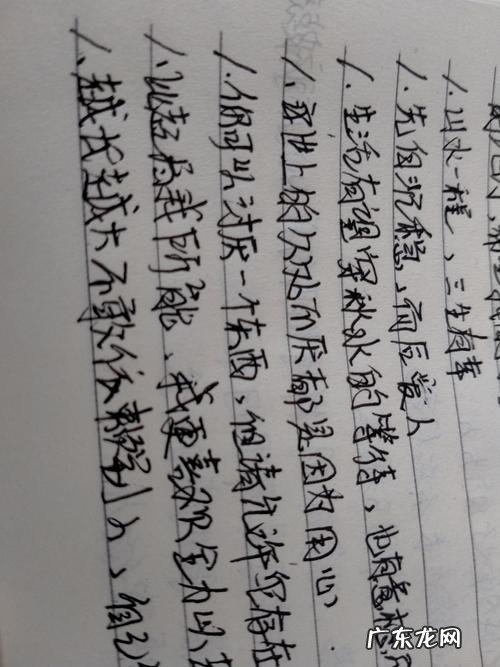 1. 山水一程、三生有幸
1. 先自沉稳、而后爱人
1. 生活有望穿秋水的等待,也有意想
1. 这世上的久处不厌都是因为用心
1. 你可以讨厌一个东西、但请允许它存在
1. 比起尽我所能、我更喜欢全力以
1. 越长越大不敢依赖别人、自己
广东龙网